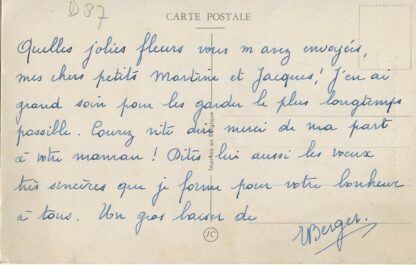 D 87
CARTE POSTALE
Quelles jolies fleurs vous m'avez envoyées,
mes chers petits Martine et Jacques! J'en ai
grand soin pour les garder le plus longtemps
possible. Courez vite dire merci de ma part
à votre maman! Dites lui aussi les vœux
très sincères que je forme pour votre bonheur
à tous. Un gros baiser de
Berger.